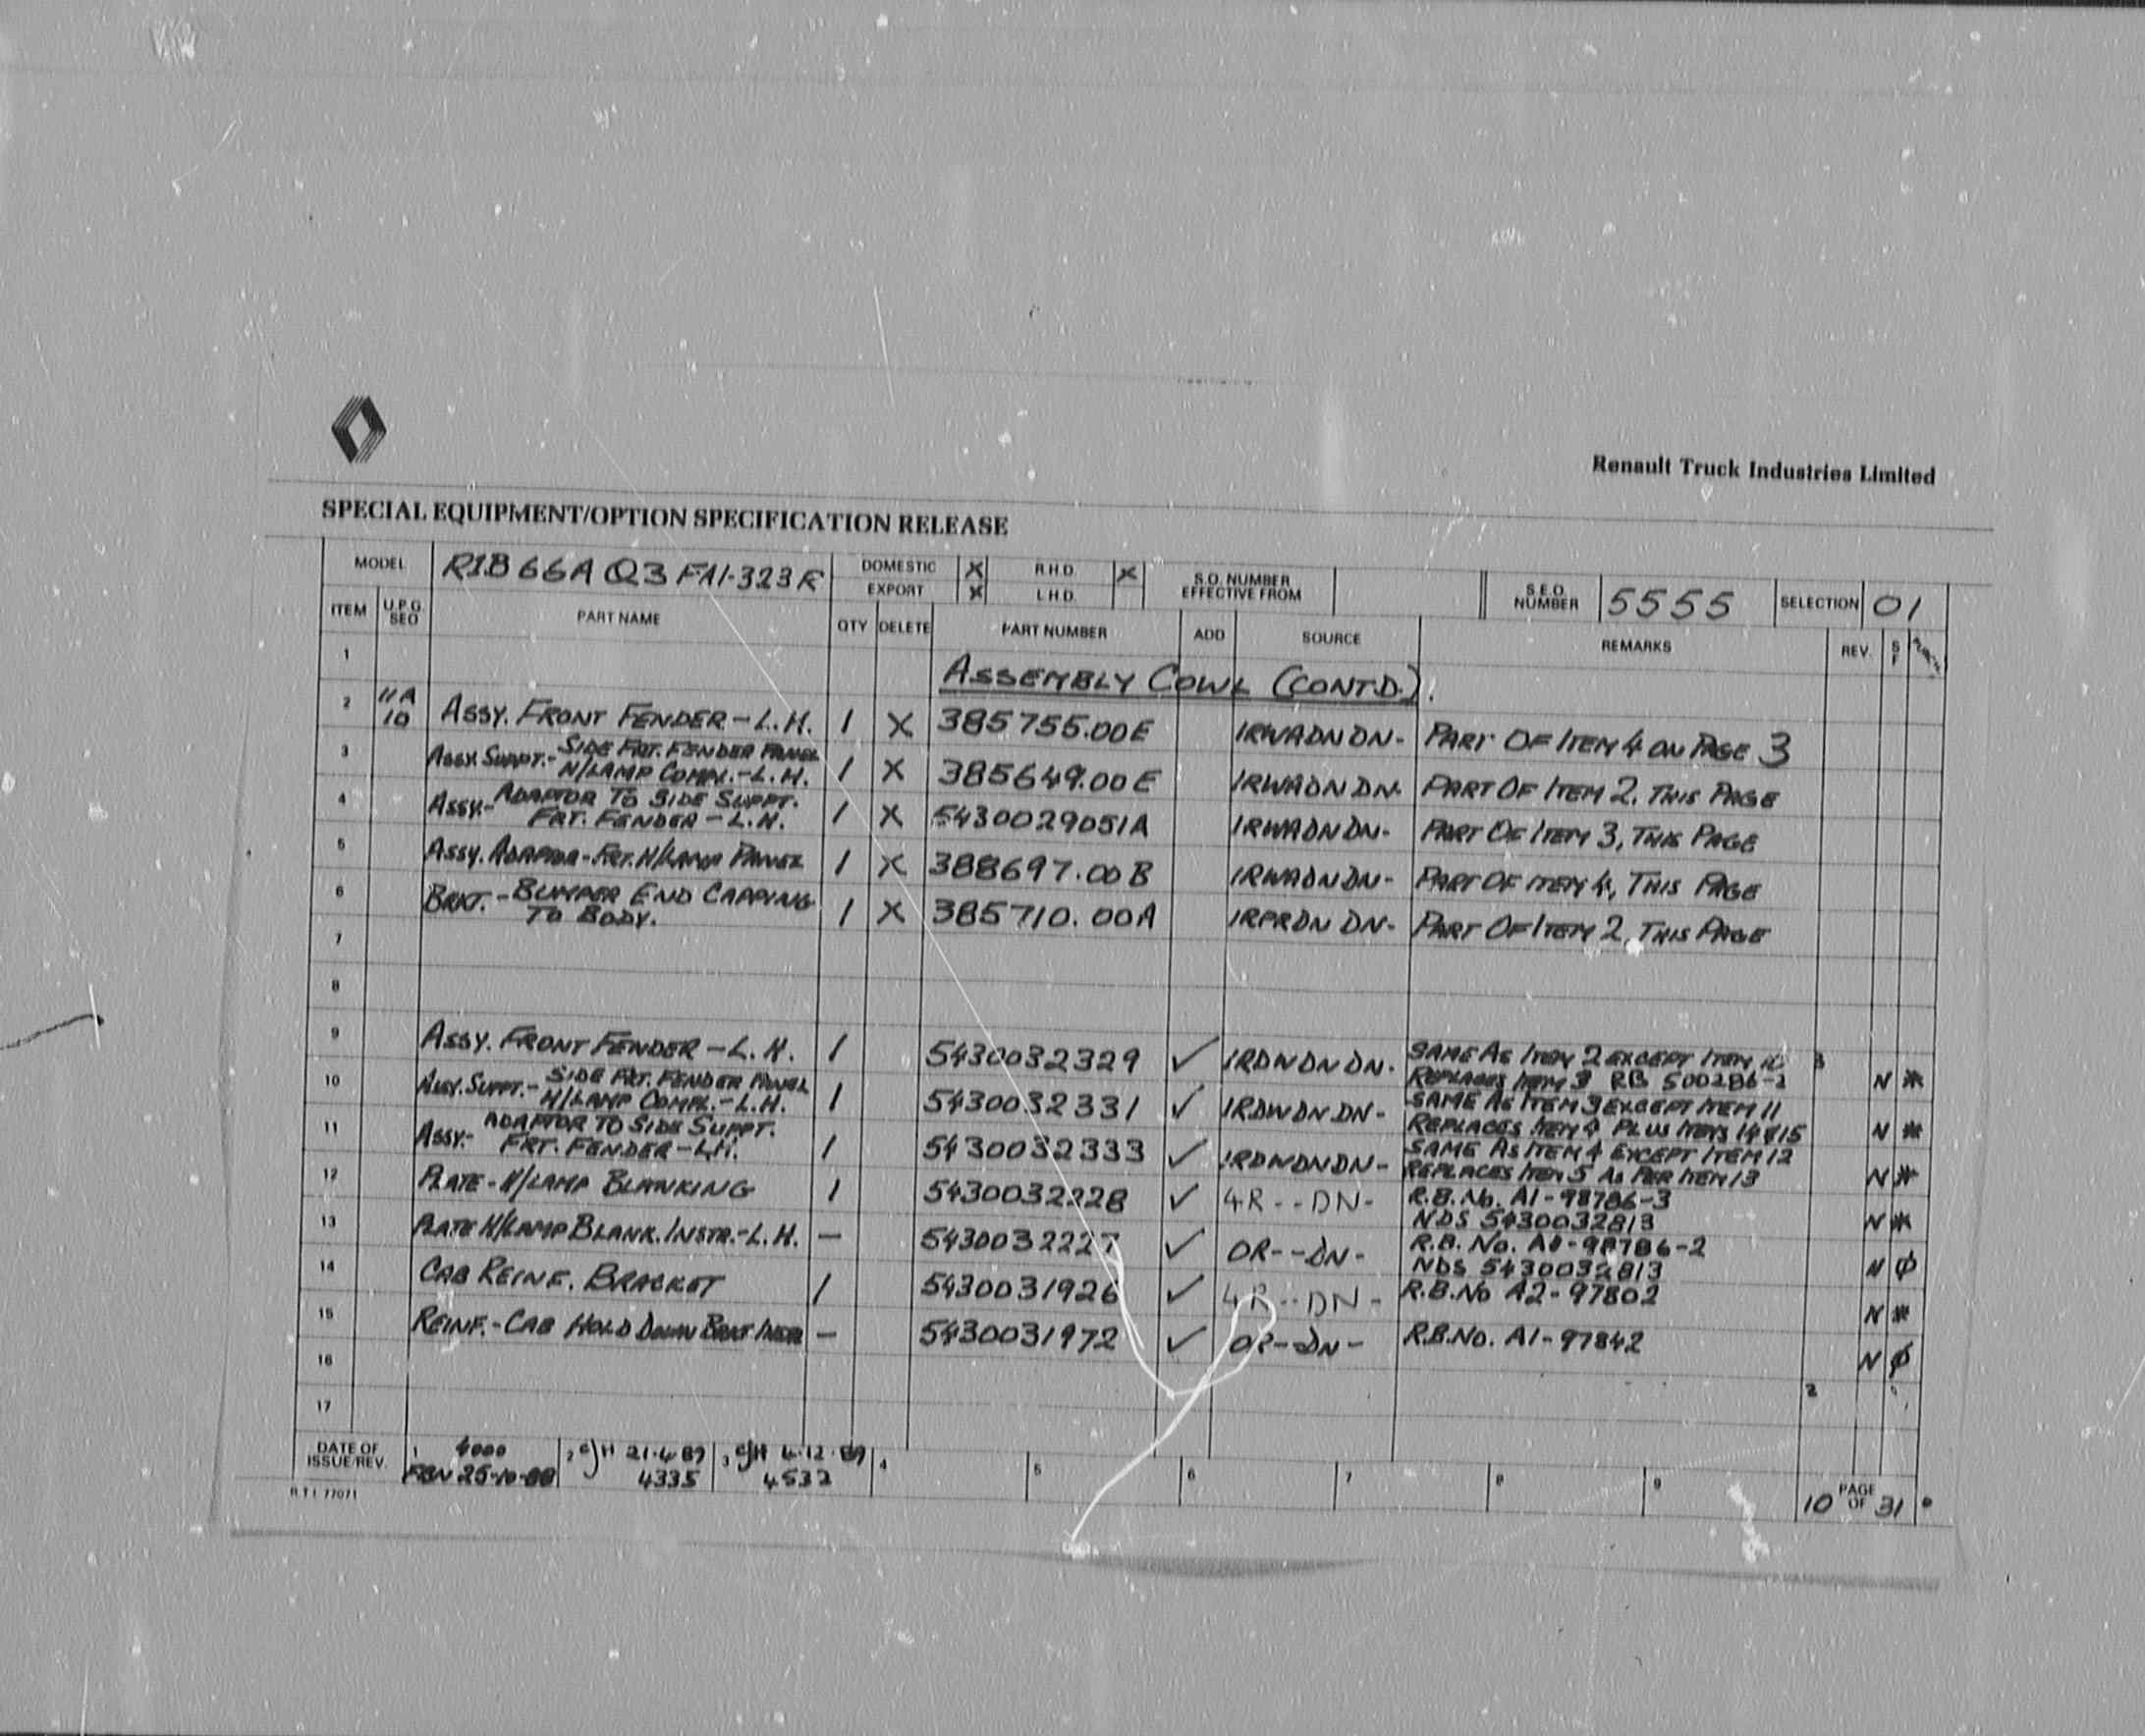 Renault Truck Industries Limited
SPECIAL EQUIPMENT/OPTION SPECIFICATION RELEASE
MODEL R1B66A Q3 FA1-323R DOMESTIC X R.H.D. X S.O. NUMBER EFFECTIVE FROM S.E.O. NUMBER 5555 SELECTION 01
EXPORT X L.H.D.
ITEM U.P.G. SEQ PART NAME QTY DELETE PART NUMBER ADD SOURCE REMARKS REV. S F
1 ASSEMBLY COWL (CONTD.).
2 11A 10 ASSY. FRONT FENDER-L.H. 1 X 385755.00E IRWADNDN- PART OF ITEM 4 ON PAGE 3
3 ASSY. SUPPT.- SIDE FRT. FENDER PANEL
H/LAMP COMPL.-L.H. 1 X 385649.00E IRWADNDN- PART OF ITEM 2, THIS PAGE
4 ASSY.- ADAPTOR TO SIDE SUPPT.
FRT. FENDER-L.H. 1 X 5430029051A IRWADNDN- PART OF ITEM 3, THIS PAGE
5 ASSY. ADAPTOR-FRT. H/LAMP PANEL 1 X 388697.00B IRWADNDN- PART OF ITEM 4, THIS PAGE
6 BRKT.- BUMPER END CAPPING
TO BODY. 1 X 385710.00A IRPRDNDN- PART OF ITEM 2, THIS PAGE
7
8
9 ASSY. FRONT FENDER-L.H. 1 5430032329 ✓ IRDNDNDN- SAME AS ITEM 2 EXCEPT ITEM 10 3
REPLACES ITEM 3 RB 500286-2 N *
10 ASSY. SUPPT.- SIDE FRT. FENDER PANEL
H/LAMP COMPL.-L.H. 1 5430032331 ✓ IRDWDNDN- SAME AS ITEM 3 EXCEPT ITEM 11
REPLACES ITEM 4 PLUS ITEMS 14 & 15 N *
11 ASSY.- ADAPTOR TO SIDE SUPPT.
FRT. FENDER-LH. 1 5430032333 ✓ IRDNDNDN- SAME AS ITEM 4 EXCEPT ITEM 12
REPLACES ITEM 5 AS PER ITEM 13 N *
12 PLATE-H/LAMP BLANKING 1 5430032228 ✓ 4R--DN- R.B. No. A1-98786-3
NDS 5430032813 N *
13 PLATE H/LAMP BLANK. INSTR.-L.H. — 5430032227 ✓ OR--DN- R.B. No. A0-98786-2
NDS 5430032813 N Ø
14 CAB REINF. BRACKET 1 5430031926 ✓ 4R--DN- R.B.No A2-97802 N *
15 REINF.-CAB HOLD DOWN BRKT — 5430031972 ✓ OR--DN- R.B.No. A1-97842 N Ø
16 2
17
DATE OF ISSUE/REV. 1 4000 2 CJH 21.4.89 3 CJH 6.12.89 4 5 6 7 8 9 10 PAGE OF 31
25-10-88 4335 4532
R.T.I. 77071